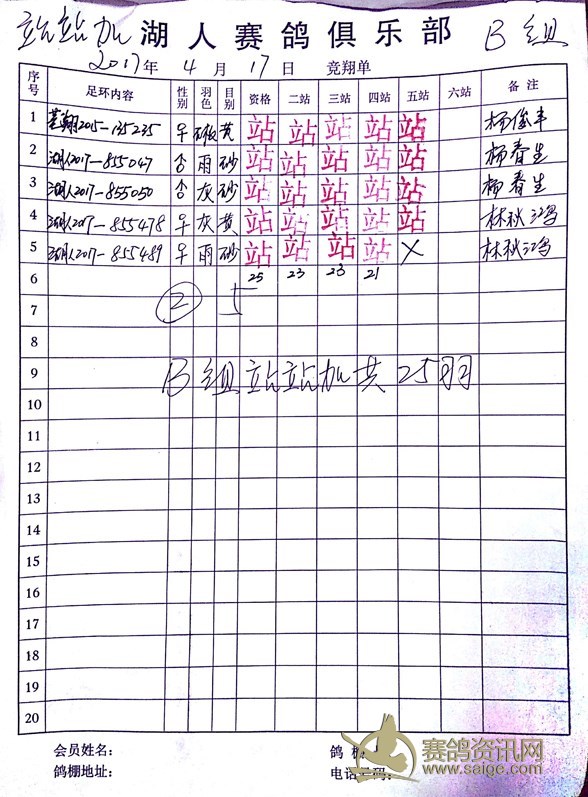 站站加 湖人赛鸽俱乐部 B组
2017年 4 月 17 日 竞翔单
序号 足环内容 性别 羽色 目别 资格 二站 三站 四站 五站 六站 备注
1 2015-135235 黄 站 站 站 站 站 杨俊丰
2 湖人2017-855047 雨 砂 站 站 站 站 站 杨春生
3 湖人2017-855050 灰 砂 站 站 站 站 站 杨春生
4 湖人2017-855478 灰 黄 站 站 站 站 站 林秋鸿
5 湖人2017-855489 雨 砂 站 站 站 站 X 林秋鸿
6 25 23 23 21
7 ②
8
9 B组站站加共25羽
10
11
12
13
14
15
16
17
18
19
20
会员姓名: 鸽棚
鸽棚地址: 电话号码:
赛鸽资讯网
www.saige.com